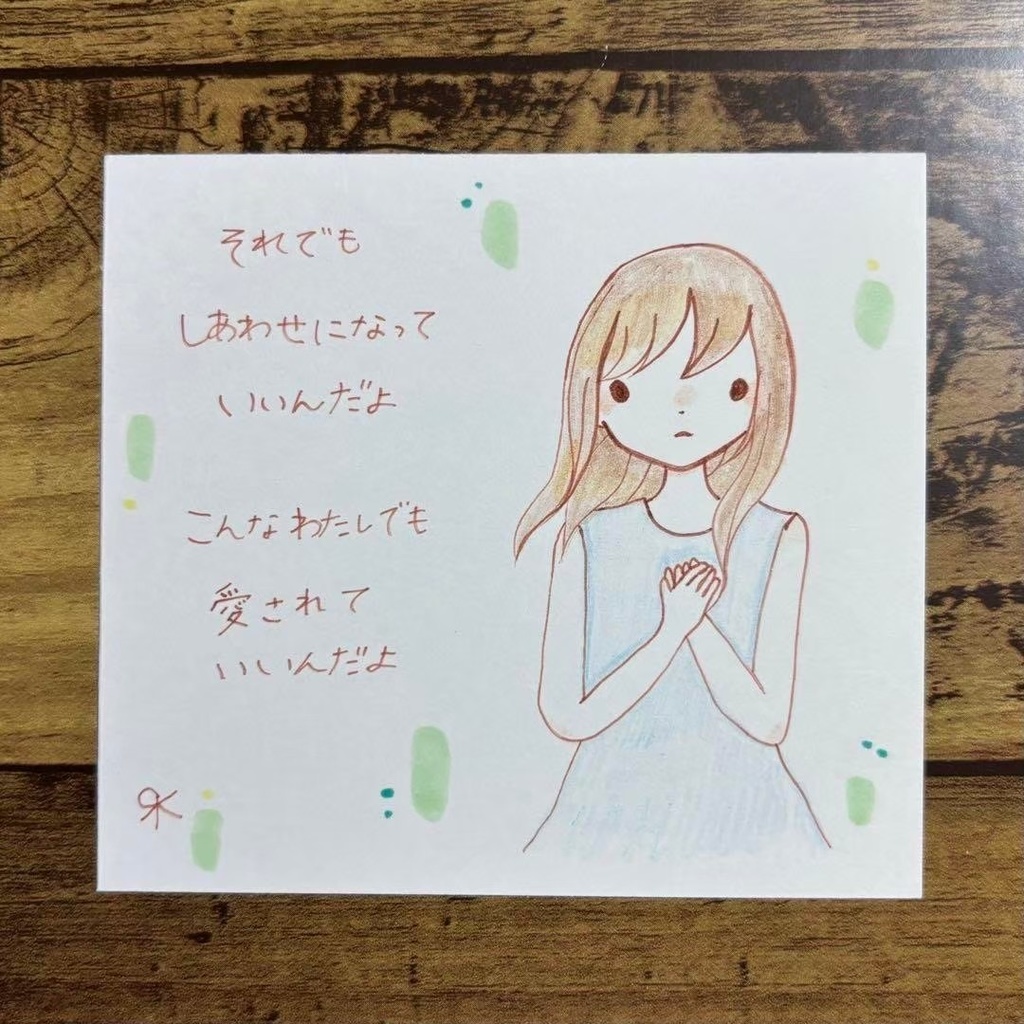 それでも
しあわせになって
いいんだよ
こんなわたしでも
愛されて
いいんだよ